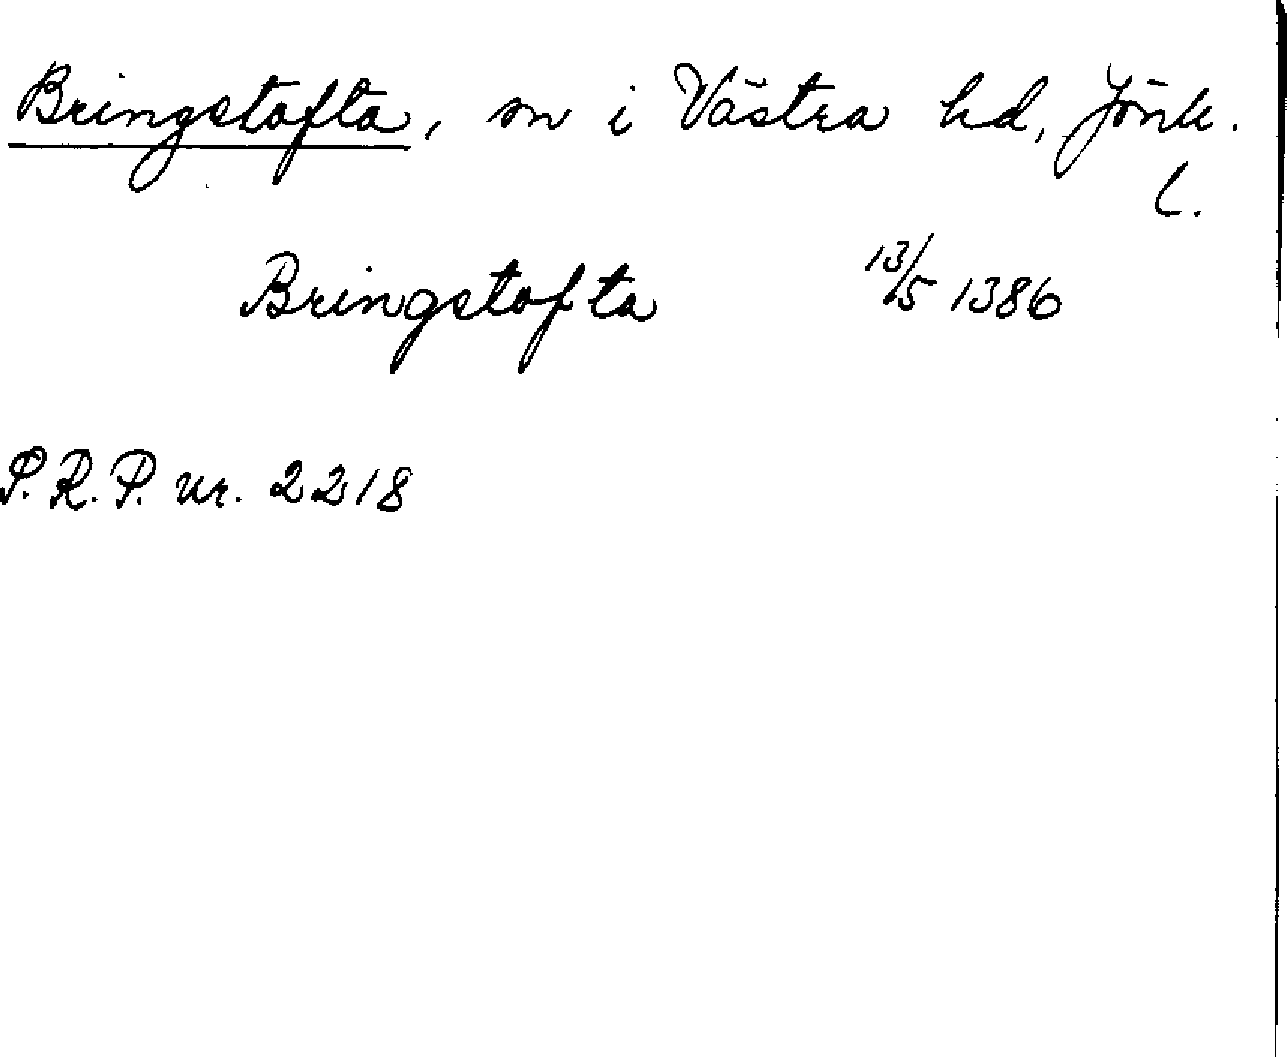 Bringstofta, sn i Västra hd, Jönk.
l.
Bringstofta 13/5 1386
P.R.P. nr. 2218